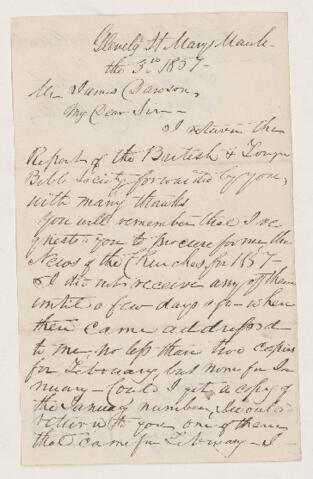 Glenelg St Marys March
the 3rd 1857-
Mr James Dawson,
My Dear Sir-
I return the
Report of the British & Foregn
Bible Society forwarded by you,
with many thanks
You will remember that I re
quested you to procure for me the
News of the Churches for 1857-
& I did not receive any of them
until a few days ago- when
there came addressed
to me no less than two copies
for February but none for Ja
nuary- Could I get a copy of
the January number, I would
return to you one of them
that came for February- I-